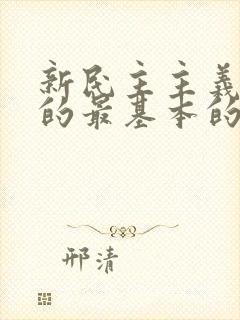 新民主主義
的最基本的
邢清